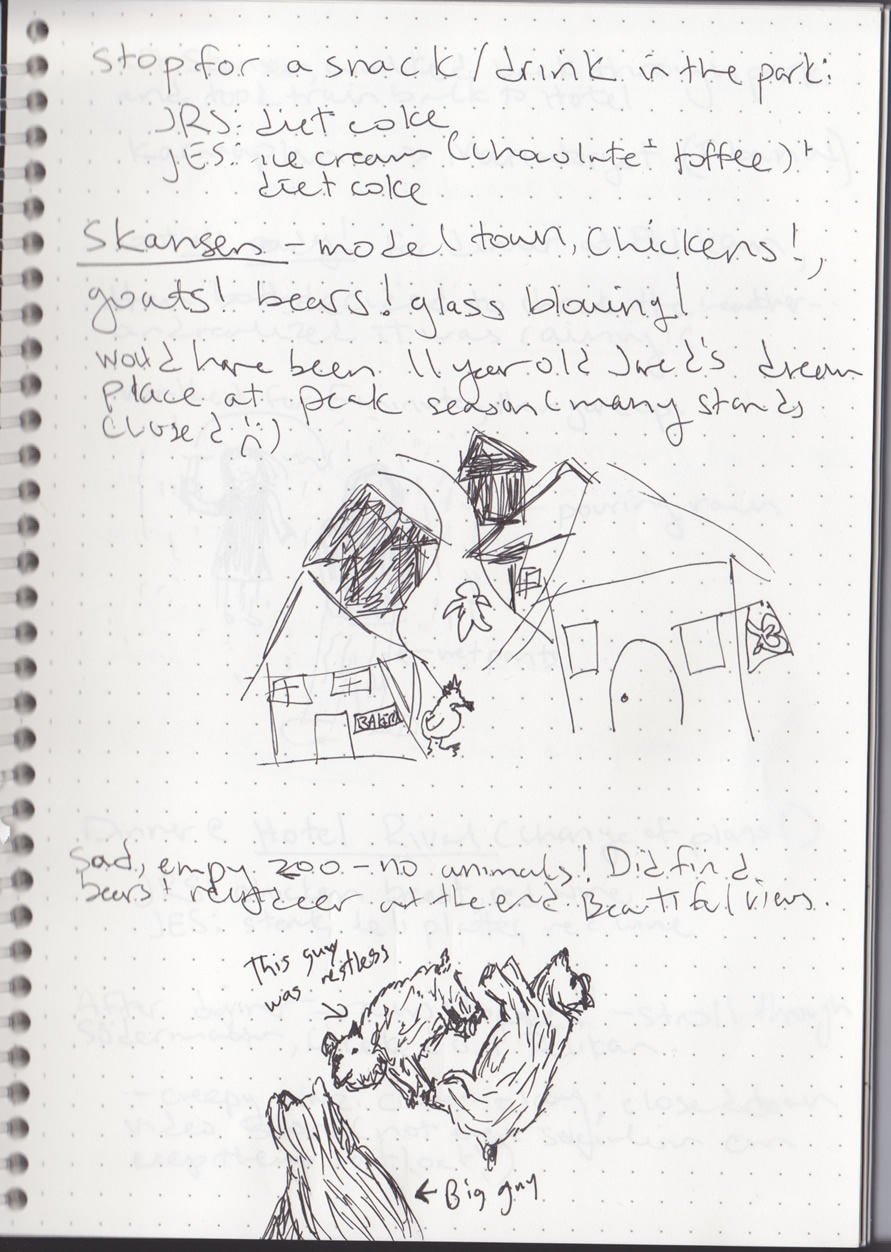 Stop for a snack/drink in the park:
JRS: diet coke
JES: ice cream (chocolate + toffee) +
diet coke
Skansen - model town, Chickens!,
goats! bears! glass blowing!
would have been 11 year old Jared's dream
place at peak season (many stands
closed :()
BAKERY
Sad, empy zoo - no animals! Did find
bears + reindeer at the end. Beautiful views.
This guy
was restless
← Big guy